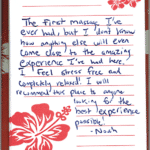 The first massage I've
ever had, but I don't know
how anything else will even
come close to the amazing
experience I've had here.
I feel stress free and
completely relaxed! I will
recommend this place to anyone
looking for the
best experience
possible.
- Noah